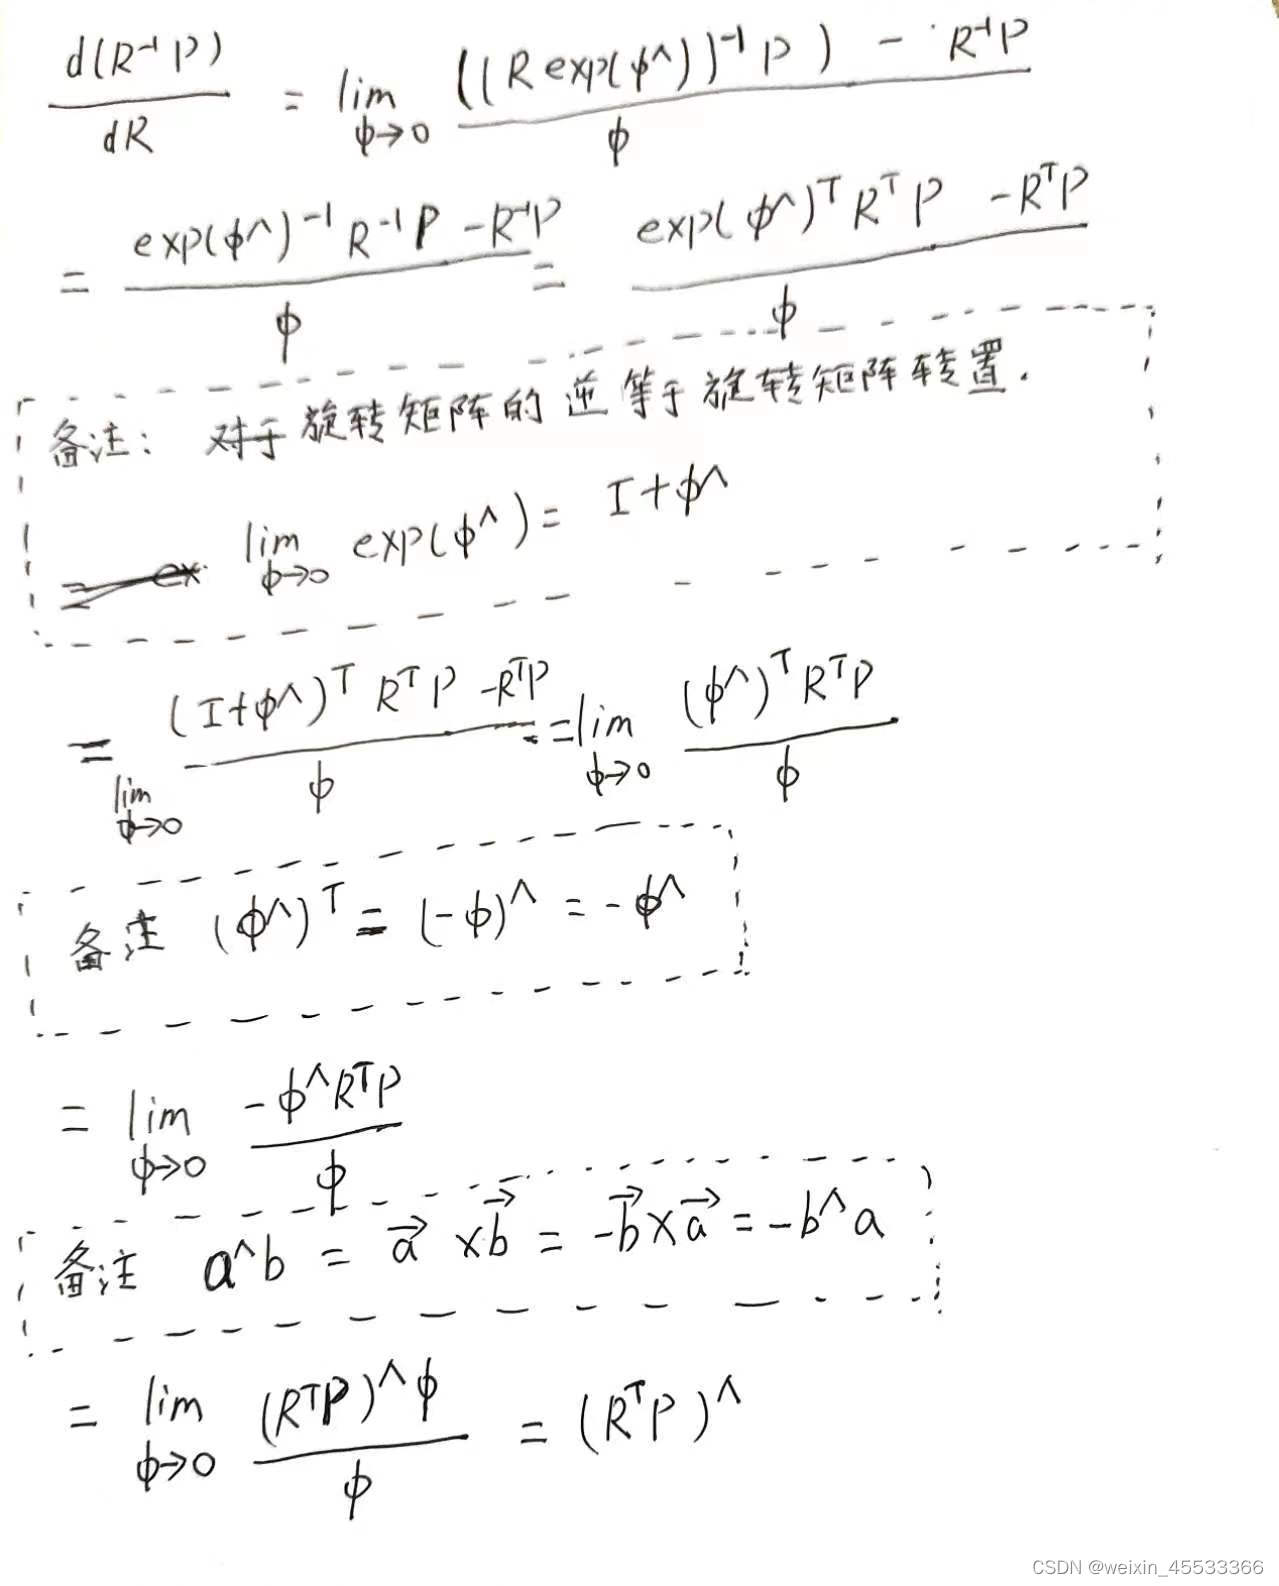 d(R⁻¹P) / dR = lim φ→0 ((R exp(φ^))⁻¹ P) - R⁻¹P / φ
= exp(φ^)⁻¹ R⁻¹ P - R⁻¹P / φ = exp(φ^)ᵀ Rᵀ P - RᵀP / φ
备注: 对于旋转矩阵的逆等于旋转矩阵转置.
lim φ→0 exp(φ^) = I + φ^
= lim φ→0 (I+φ^)ᵀ Rᵀ P - RᵀP / φ = lim φ→0 (φ^)ᵀ RᵀP / φ
备注 (φ^)ᵀ = (-φ)^ = -φ^
= lim φ→0 -φ^RᵀP / φ
备注 a^b = a⃗ × b⃗ = -b⃗ × a⃗ = -b^a
= lim φ→0 (RᵀP)^φ / φ = (RᵀP)^
CSDN @weixin_45533366